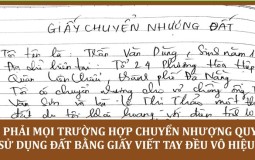 GIẤY CHUYỂN NHƯỢNG ĐẤT
Tôi tên là: Trần Văn Dũng, Sinh năm 1
chỉ hiện tại: Tổ 24 Phường Hòa Hiệp
Quận Liên Chiểu, thành phố Đà Nẵng
Tôi có chuyển nhượng cho vợ chồng ông
Văn Sơn và bà: Lê Thị Thảo, một th
đất do tôi khai hoang
PHẢI MỌI TRƯỜNG HỢP CHUYỂN NHƯỢNG QUY
SỬ DỤNG ĐẤT BẰNG GIẤY VIẾT TAY ĐỀU VÔ HIỆU